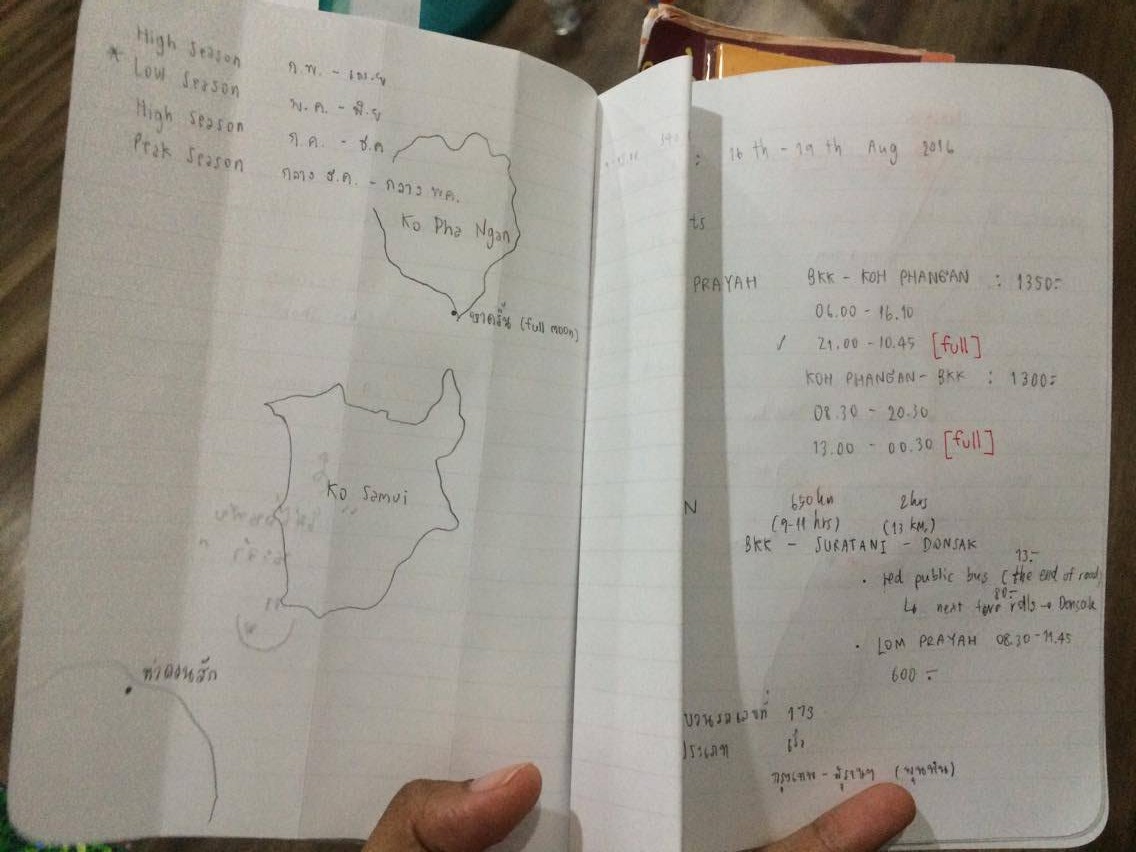 High Season ก.พ. - เม.ย
* Low Season พ.ค. - มิ.ย
High Season ก.ค. - ส.ค
Peak Season กลาง ธ.ค. - กลาง พ.ค.
Ko Pha Ngan
หาดริ้น (full moon)
Ko Samui
ท่าดอนสัก
: 26 th - 29 th Aug 2016
ts
PRAYAH BKK - KOH PHANGAN : 1350.-
06.00 - 16.10
✓ 21.00 - 10.45 [full]
KOH PHANGAN - BKK : 1300.-
08.30 - 20.30
13.00 - 00.30 [full]
N 650 km 2hrs
(9-11 hrs) (13 KM.)
BKK - SURATANI - DONSAK
13.-
• red public bus (the end of road)
80.-
↳ next → Donsak
• LOM PRAYAH 08.30 - 11.45
600.-
บวนรถเลขที่ 173
ประเภท เร็ว
กรุงเทพ - สุราษฯ (พุนพิน)